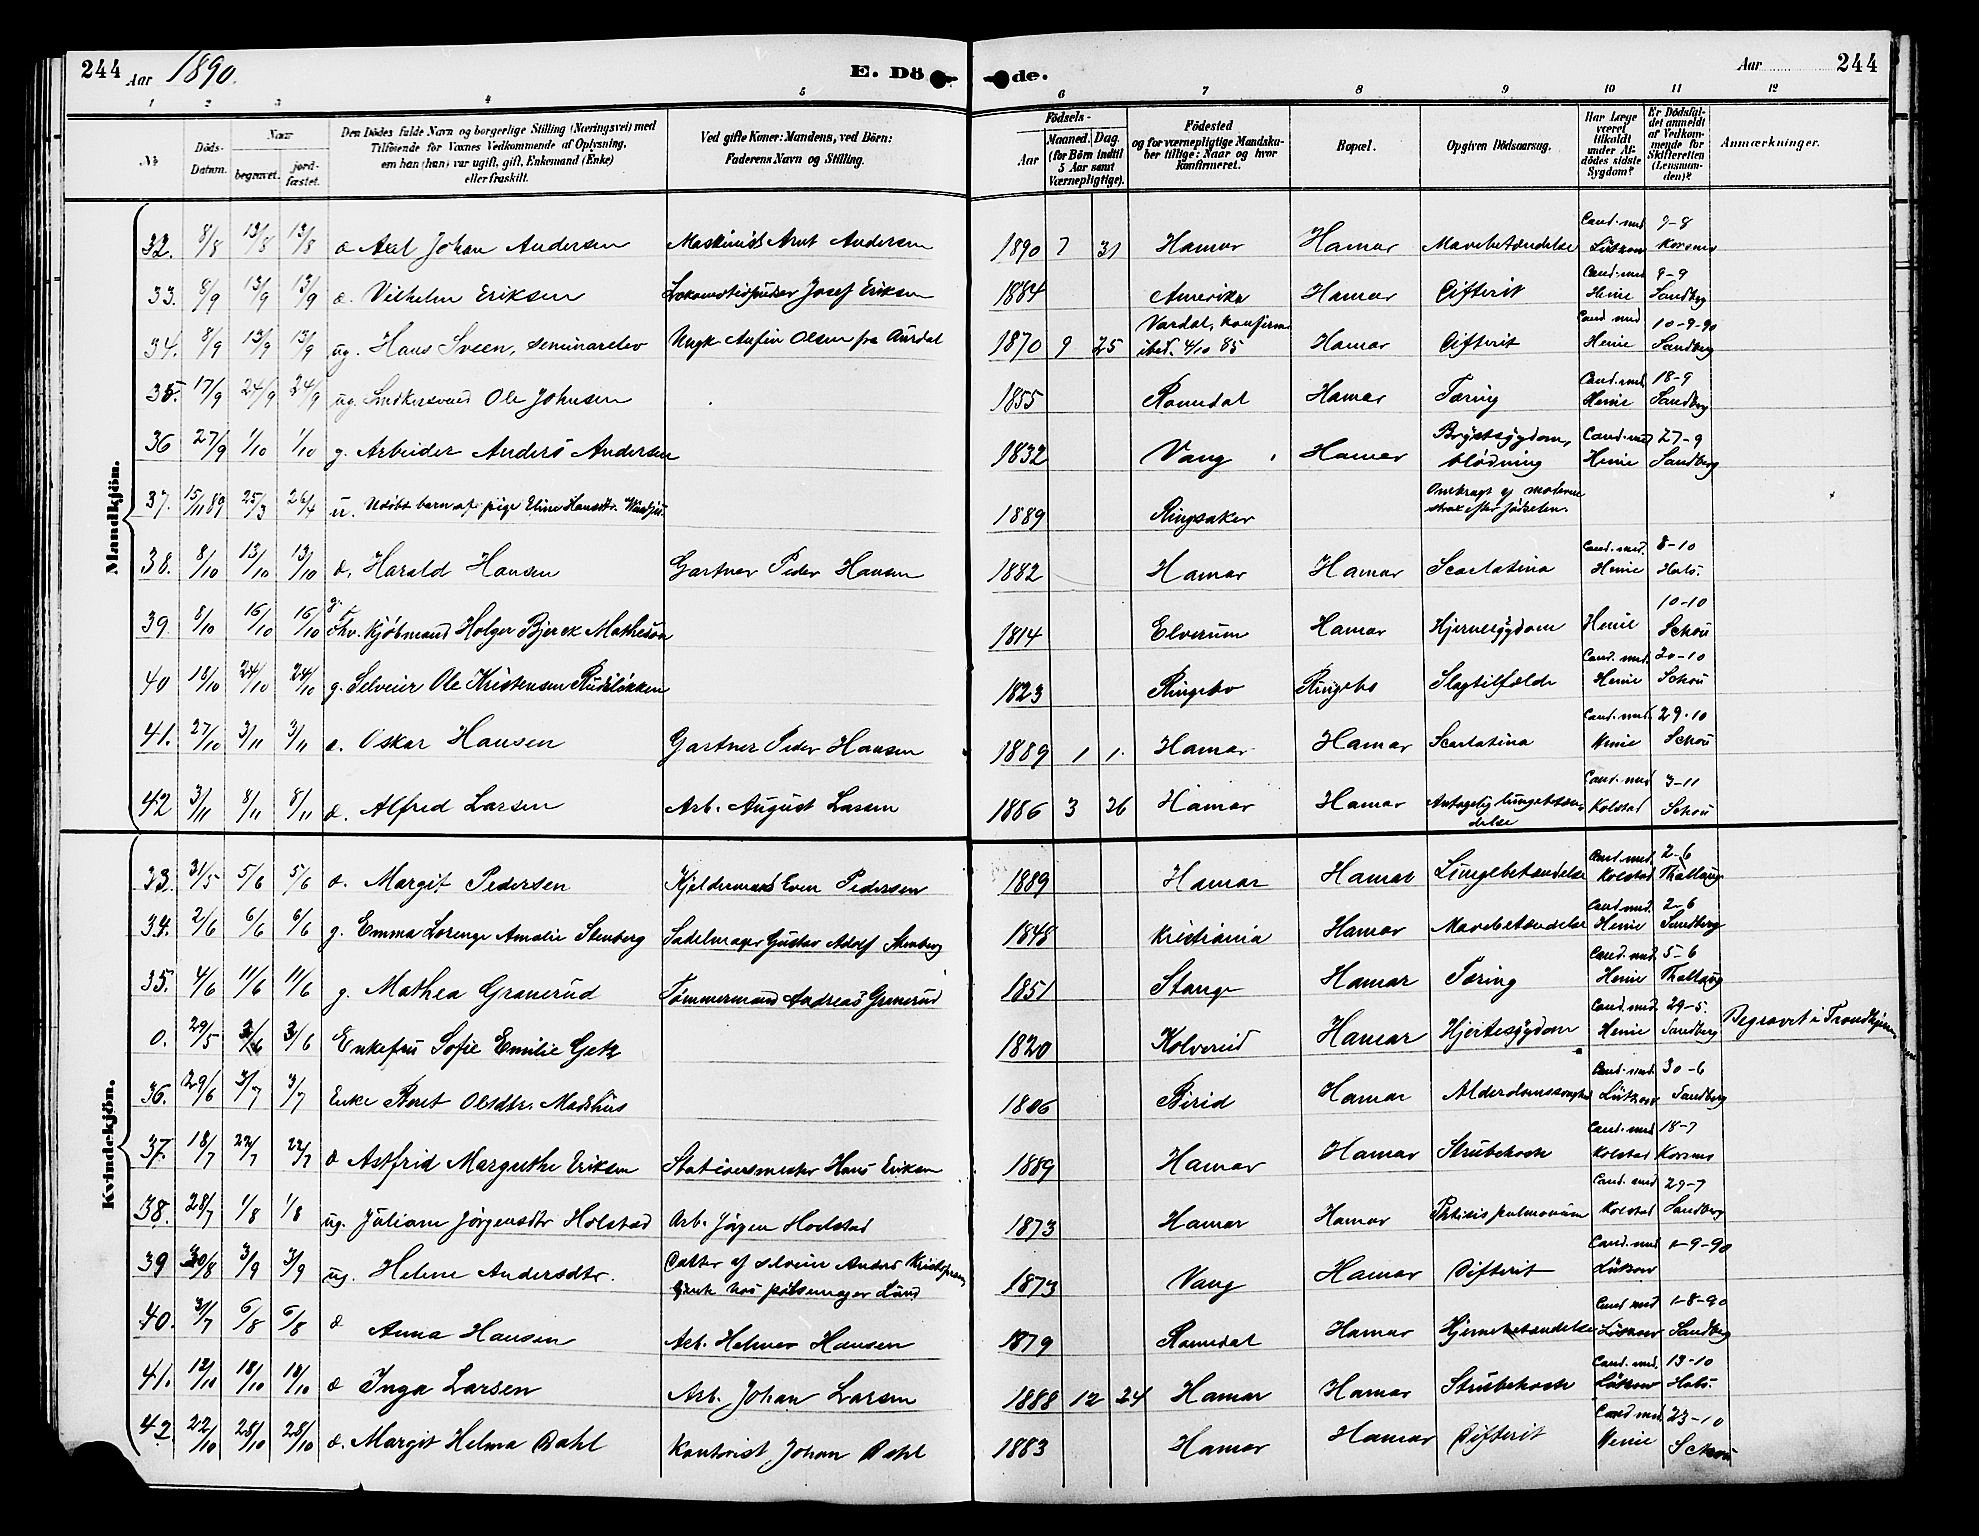 244 Aar 1890. E. Dö de. Aar 244
1 2 3 4 5 6 7 8 9 10 11 12
№ Döds-Datum. Naar begravet. jordfæstet. Den Dödes fulde Navn og borgerlige Stilling (Næringsvei) med Tilföiende for Voxnes Vedkommende af Oplysning, om han (hun) var ugift, gift, Enkemand (Enke) eller fraskilt. Ved gifte Koner: Mandens, ved Börn: Faderens Navn og Stilling. Födsels- Aar Maaned. Dag. (for Börn indtil 5 Aar samt Værnepligtige). Födested og for værnepligtige Mandskaber tillige: Naar og hvor Konfirmeret. Bopæl. Opgiven Dödsaarsag. Har Læge været tilkaldt under Afdödes sidste Sygdom? Er Dödsfaldet anmeldt af Vedkommende for Skifteretten (Lensmanden)? Anmærkninger.
Mandkjön.
32. 8/8 13/8 13/8 d Axel Johan Andersen Maskinist Arnt Andersen 1890 7 31 Hamar Hamar Mavebetændelse Cand. med Lütkow 9-8 Korsmo
33. 8/9 13/9 13/9 d. Vilhelm Eriksen Lokomotivpudser Josef Eriksen 1884 Amerika Hamar Difterit Cand. med Henie 9-9 Sandberg
34. 8/9 13/9 13/9 ug. Hans Sveen, seminarelev Ungk. Anfin Olsen fra Aurdal 1870 9 25 Vardal, konfirm. ibid. 4/10 85 Hamar Difterit Cand med Henie 10-9-90 Sandberg
35. 17/9 24/9 24/9 ug. Snedkersvend Ole Johnsen 1855 Romedal Hamar Tæring Cand. med. Henie 18-9 Sandberg
36 27/9 1/10 1/10 g. Arbeider Anders Andersen 1832 Vang Hamar Brystsygdom, blødning Cand. med Henie 27-9 Sandberg
37. 15/11 89 25/3 26/4 u. Udøbt barn af pige Eline Hansdtr. 1889 Ringsaker Ombragt af moderen strax efter fødselen.
38. 8/10 13/10 13/10 d. Harald Hansen Gartner Peder Hansen 1882 Hamar Hamar Scarlatina Cand. med. Henie 8-10 Hals.
39. 8/10 16/10 16/10 g. Fhv. Kjøbmand Holger Bjerck Matheson 1814 Elverum Hamar Hjernesygdom Henie 10-10 Schou
40 18/10 24/10 24/10 g. Selveier Ole Kristensen Rudsløkken 1823 Ringebo Ringebo Slagtilfælde Cand. med. Henie 20-10 Schou
41. 27/10 3/11 3/11 d. Oskar Hansen Gartner Peder Hansen 1889 1 1. Hamar Hamar Scarlatina Cand. med. Henie 29-10 Schou
42 3/11 8/11 8/11 d. Alfred Larsen Arb. August Larsen 1886 3 26 Hamar Hamar Antagelig lungebetændelse Cand. med Kolstad 3-11 Schou
Kvindekjön.
33. 31/5 5/6 5/6 d. Margit Pedersen Kjeldermand Even Pedersen 1889 Hamar Hamar Lungebetændelse Cand. med. Kolstad 2-6 Thallaug
34. 2/6 6/6 6/6 g. Emma Lorenze Amalie Stenberg Sadelmager Gustav Adolf Stenberg 1848 Kristiania Hamar Mavebetændelse Cand. med. Henie 2-6 Sandberg
35. 4/6 11/6 11/6 g. Mathea Granerud Tømmermand Andreas Granerud 1851 Stange Hamar Tæring Cand. med. Henie 5-6 Thallaug
0. 29/5 3/6 3/6 Enkefru Sofie Emilie Getz 1820 Kolvereid Hamar Hjertesygdom Cand. med. Henie 29-5. Sandberg Begravet i Trondhjem
36. 29/6 3/7 3/7 Enke Beret Olsdtr. Madshus 1806 Birid Hamar Alderdomssvaghed Cand. med. Lütkow 30-6 Sandberg
37. 18/7 22/7 22/7 d Astfrid Margrethe Eriksen Stationsmester Hans Eriksen 1889 Hamar Hamar Strubehoste Cand. med Kolstad 18-7 Korsmo
38. 28/7 1/8 1/8 ug. Juliane Jørgensdtr Holstad Arb. Jørgen Holstad 1873 Hamar Hamar Phtisis pulmonum Cand. med Kolstad 29-7 Sandberg
39 30/8 3/9 3/9 ug. Helene Andersdtr. Datter af selveier Anders tjente hos pølsemager Lund 1873 Vang Hamar Difterit Cand. med Lütkow 1-9-90
40. 31/7 6/8 6/8 d Anna Hansen Arb. Helmer Hansen 1879 Romedal Hamar Hjernebetændelse Cand med Lütkow 1-8-90 Sandberg
41. 12/10 18/10 18/10 d Inga Larsen Arb. Johan Larsen 1888 12 24 Hamar Hamar Strubehoste Cand. med. Lütkow 13-10 Hals.
42. 22/10 28/10 28/10 d. Margit Helma Dahl Kontorist Johan Dahl 1883 Hamar Hamar Difterit Cand med. Henie 23-10 Schou